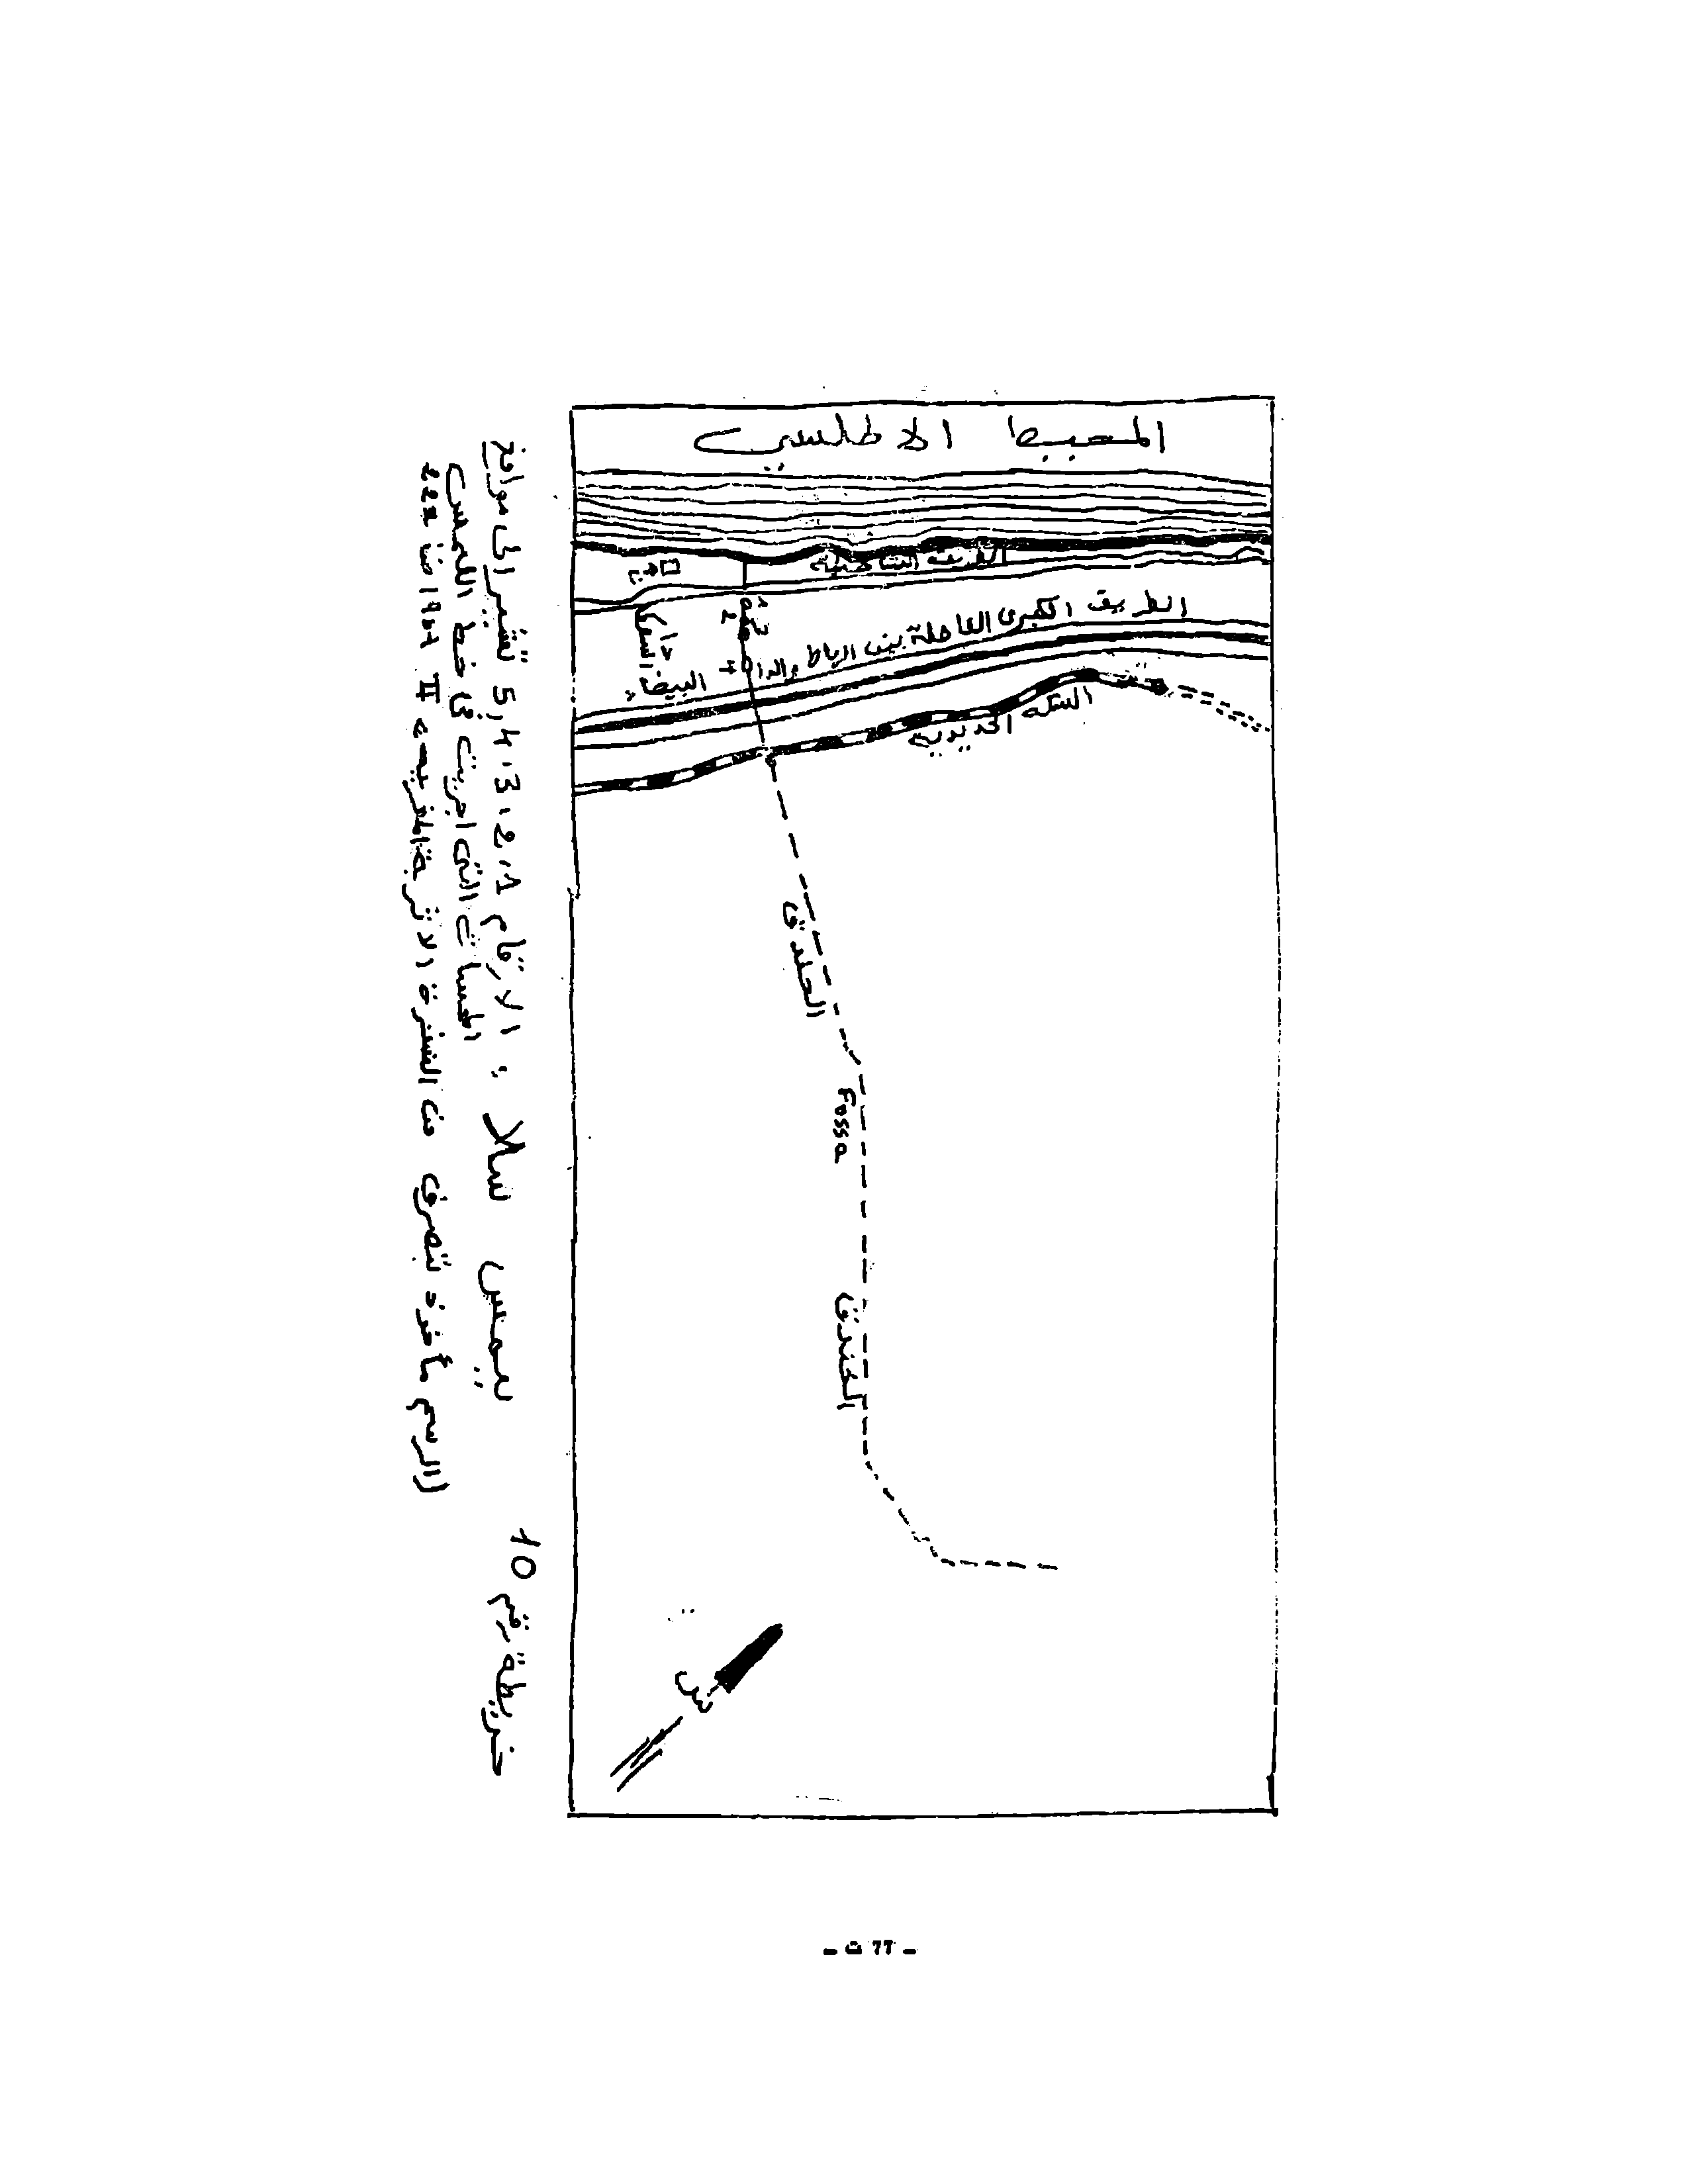 المحيط الاطلسي
الطريق الساحلية
الطريق الكبرى الفاصلة بين الرباط والدار البيضاء
السكة الحديدية
الخندق
Fossa
الخندق
ش
خريطة رقم 10
ليمس سلا : الارقام 1، 2، 3، 4، 5 تشير الى مواقع
الجسات التي اجريت في خط الليمس
(الرسم مأخوذ بتصرف من النشرة الاثرية المغربية II
- 77 ت -